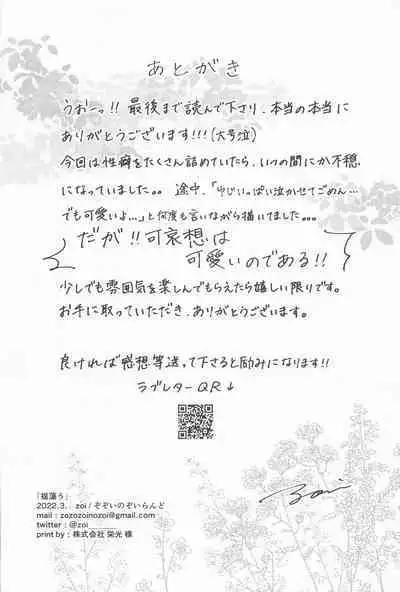 あとがき
うおーっ!! 最後まで読んで下さり、本当の本当に
ありがとうございます!!!(大号泣)
今回は性癖をたくさん詰めていたら、いつの間にか不穏
になっていました。。 途中、「ゆじいっぱい泣かせてごめん…
でも可愛いよ…」と何度も言いながら描いてました。。。
だが!!可哀想は
可愛いのである!!
少しでも雰囲気を楽しんでもらえたら嬉しい限りです。
お手に取っていただき、ありがとうございます。
良ければ感想等送って下さると励みになります!!
ラブレターQR↓
2022.3. zoi/ぞぞいのぞいらんど
mail:zozozoinozoi@gmail.com
twitter:@zoi______
print by:株式会社 栄光 様
zoi